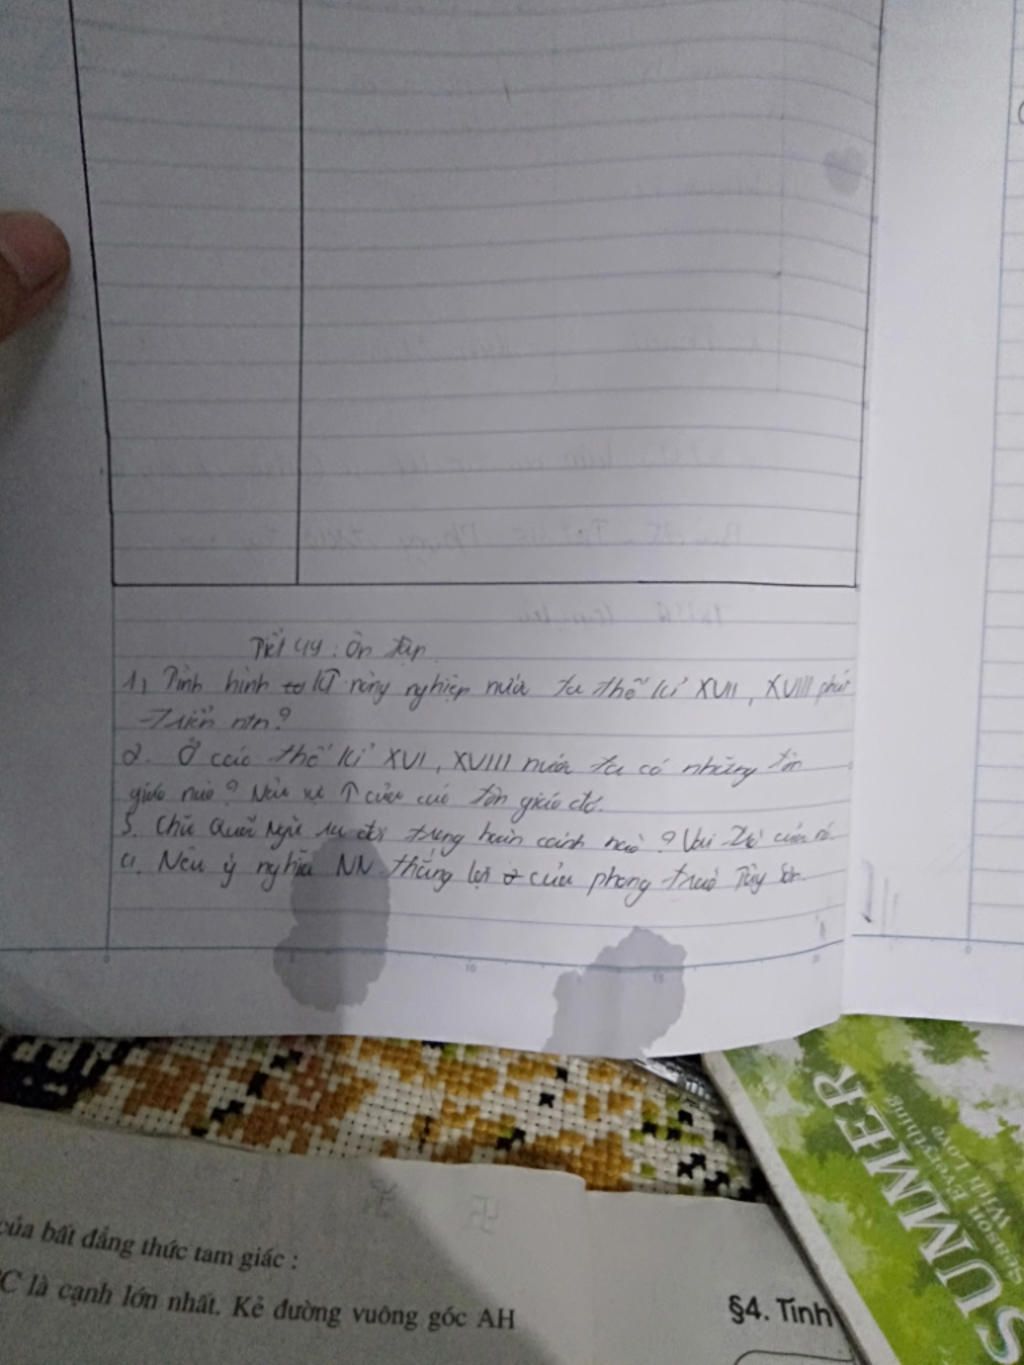 Tiết 44: Ôn tập
1, Tình hình KT nông nghiệp nước ta thế kỉ XVII, XVIII phát
triển ntn?
2. Ở các thế kỉ XVI, XVIII nước ta có những tôn
giáo nào? Nêu sự ↑ của các tôn giáo đó.
3. Chữ Quốc Ngữ ra đời trong hoàn cảnh nào? Vai trò của nó
4. Nêu ý nghĩa NN thắng lợi của phong trào Tây Sơn.
của bất đẳng thức tam giác :
C là cạnh lớn nhất. Kẻ đường vuông góc AH
§4. Tính
SUMMER
Season
With Love
Everything